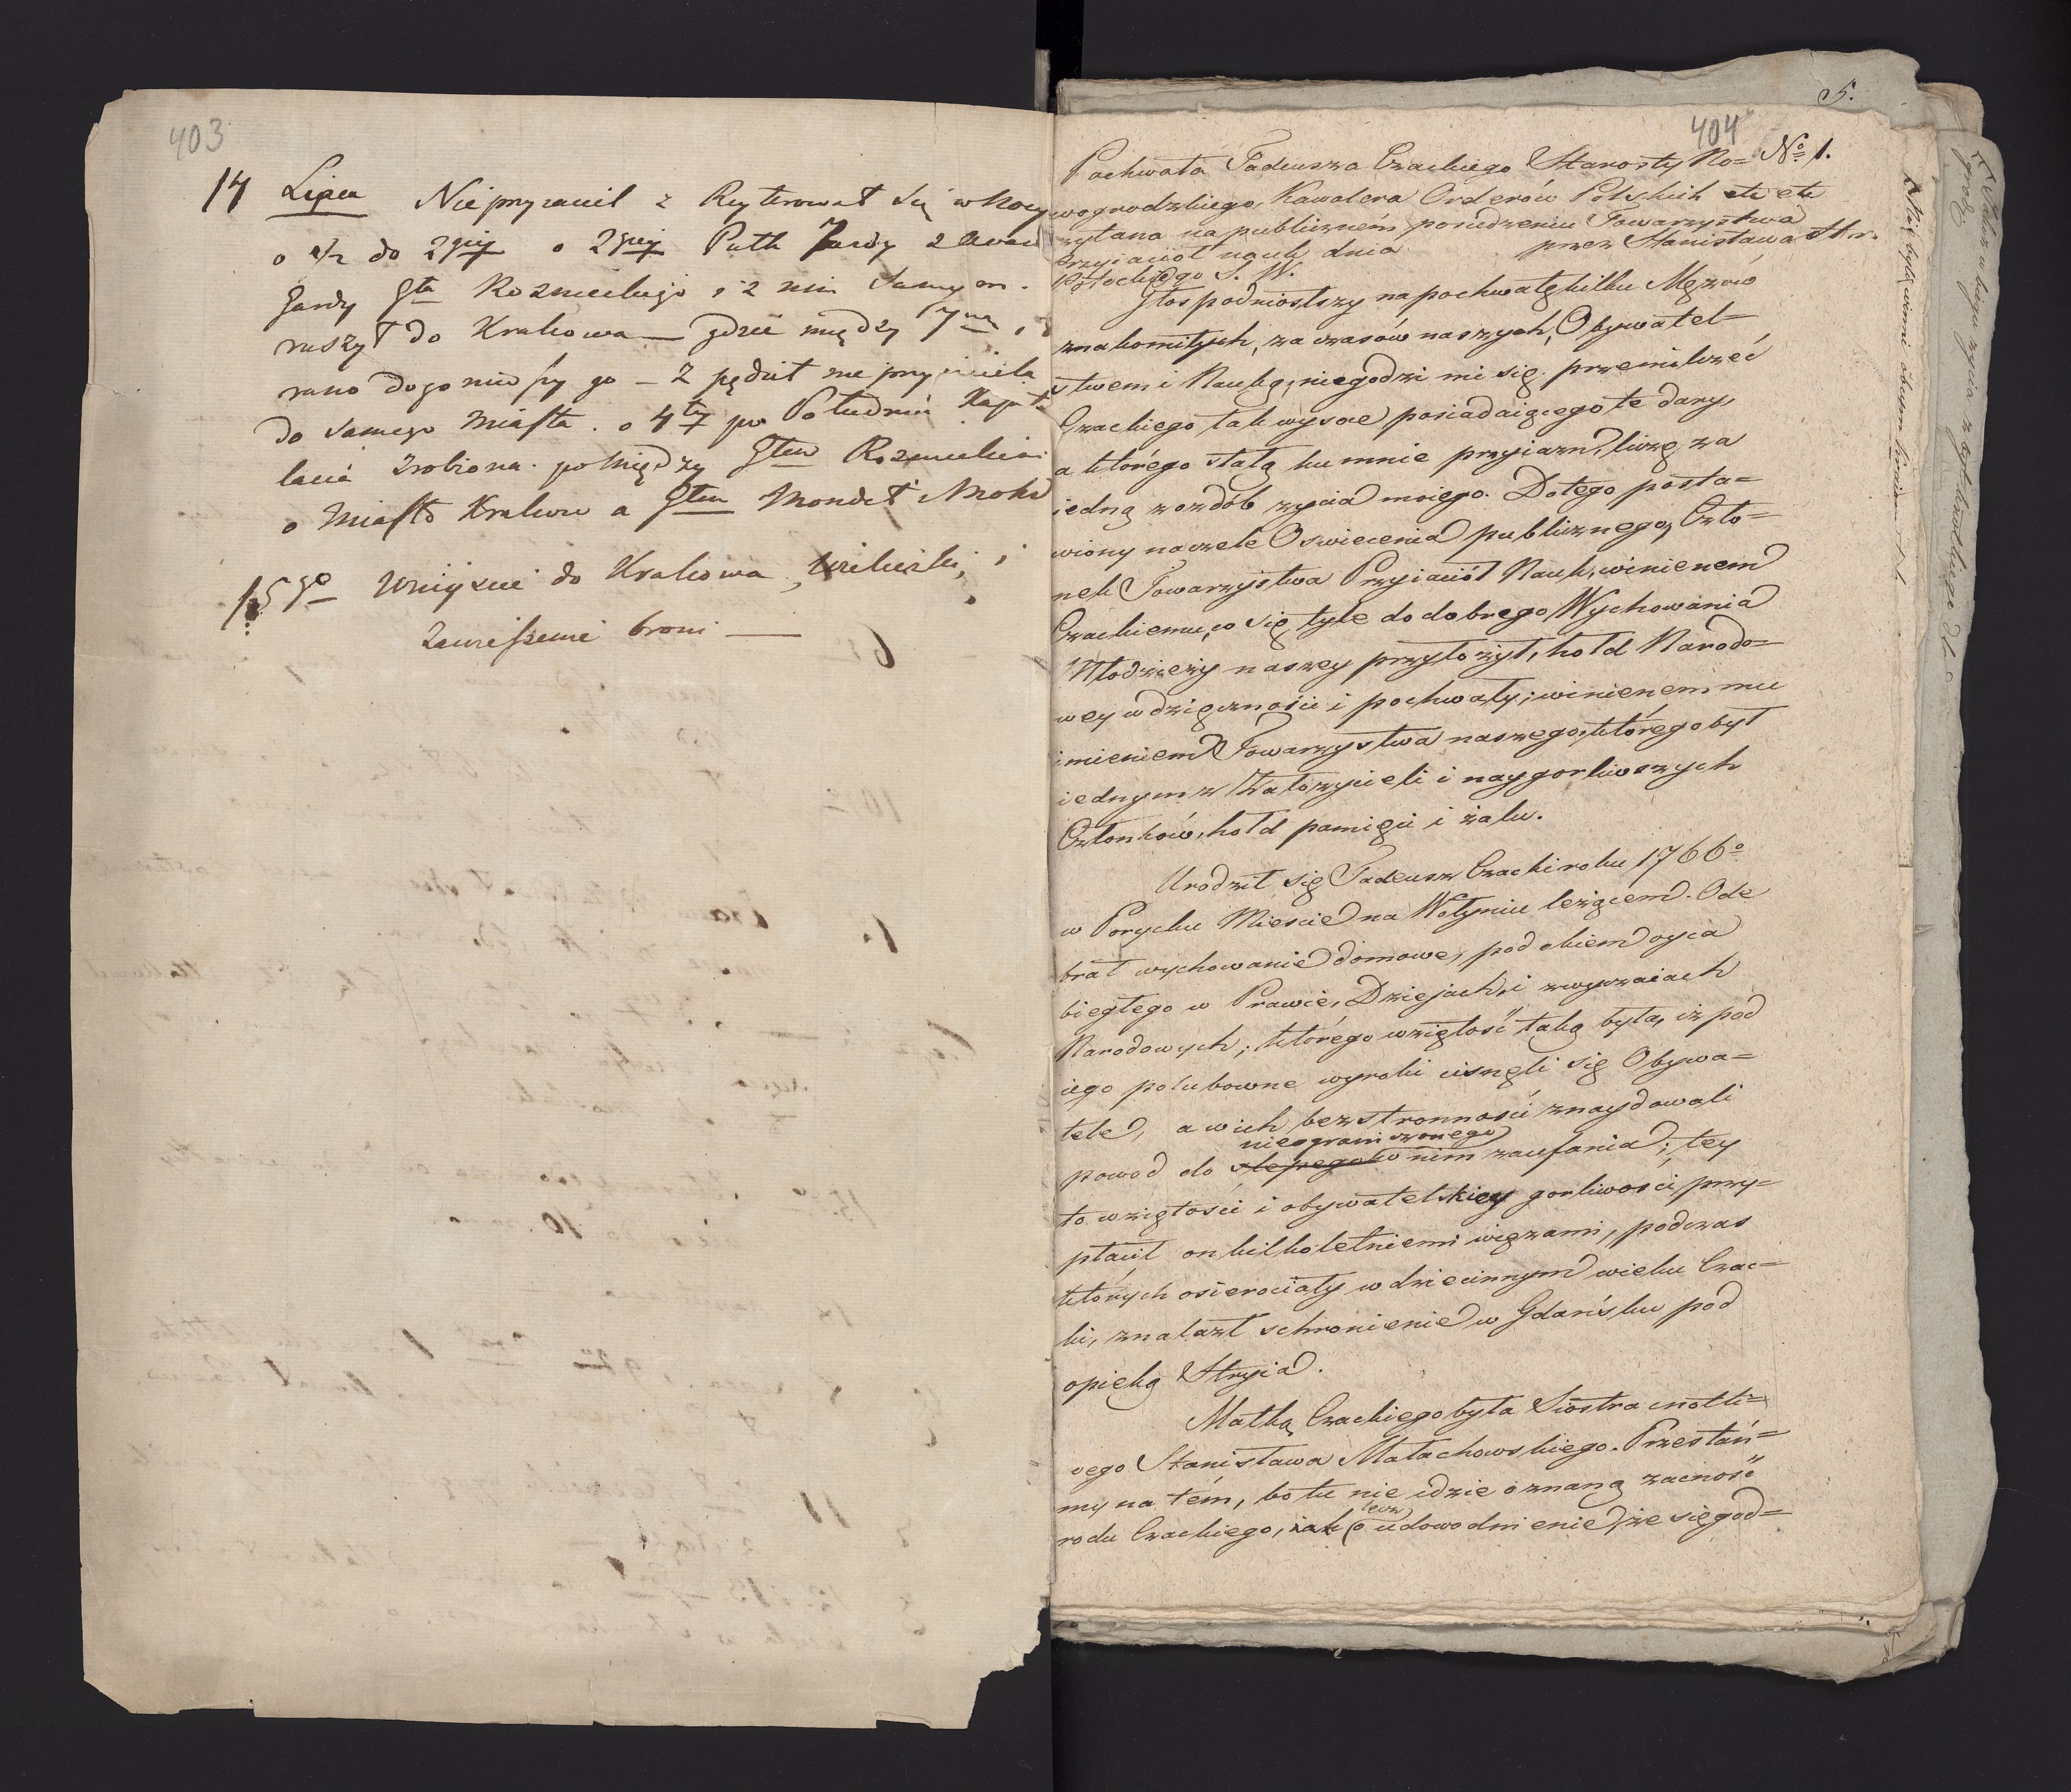 403
14 Lipca Nieprzyiaciel z Reyterował się w nocy
o 1/2 do 2giey o 2giey Pułk Jazdy z Awan
Gardy Gła Roznieckiego i z nim samym
ruszył do Krakowa — gdzie między 7mą i
rano dogoniwszy go — z pędził nieprzyiaciela
do samego Miasta. o 4tey po Południu Kapitu
lacia zrobiona pomiędzy Głem Roznieckim
o Miasto Kraków a Głem Mondet
15go Wniyscie do Krakowa, i
Zawieszenie broni —
5.
404
Pochwała Tadeusza Czackiego Starosty No= No 1.
wogrodzkiego, Kawalera Orderów Polskich etc etc
czytana na publiczném posiedzeniu Towarzystwa
Przyiaciół nauk dnia przez Stanisława Hr.
Potockiego S. W.
Głos podniosłszy na pochwałę kilku Mężów
znakomitych, za czasów naszych, Obywatel=
stwem i Nauką, niegodzi mi się przemilczeć
Czackiego tak wysoce posiadaiącego te dary,
a którego stałą ku mnie przyiaźń, liczę za
iedną z ozdób życia moiego. Do tego posta=
wiony na czele Oswiecenia publicznego, Czło=
nek Towarzystwa Przyiaciół Nauk, winienem
Czackiemu, co się tyle do dobrego Wychowania
Młodzieży naszey przyłożył, hołd Narodo=
wey wdzięczności i pochwały; winienem mu
imieniem Towarzystwa naszego, którego był
iednym z Założycieli i naygorliwszych
Członków, hołd pamięci i żalu.
Urodził się Tadeusz Czacki roku 1766o
w Porycku Mieście na Wołyniu leżącem. Ode
brał wychowanie domowe, pod okiem oyca
biegłego w Prawie, Dziejach, i zwyczaiach
Narodowych; którego wziętość taką była, iż pod
iego polubowne wyroki cisnęli się Obywa=
tele, a w ich bezstronności znaydowali
nieograniczonego
powod do slepego w nim zaufania; tey
to wziętości i obywatelskiey gorliwości przy=
płacił on kilkoletniemi więzami, podczas
których osierociały w dziecinnym wieku Czac=
ki, znalazł schronienie w Gdańsku pod
opieką Stryia.
Matką Czackiego była Siostra cnotli=
wego Stanisława Małachowskiego. Przestań=
my na tém, bo tu nie idzie o znaną zacność
lecz
rodu Czackiego, iak o udowodnienie, że się god=